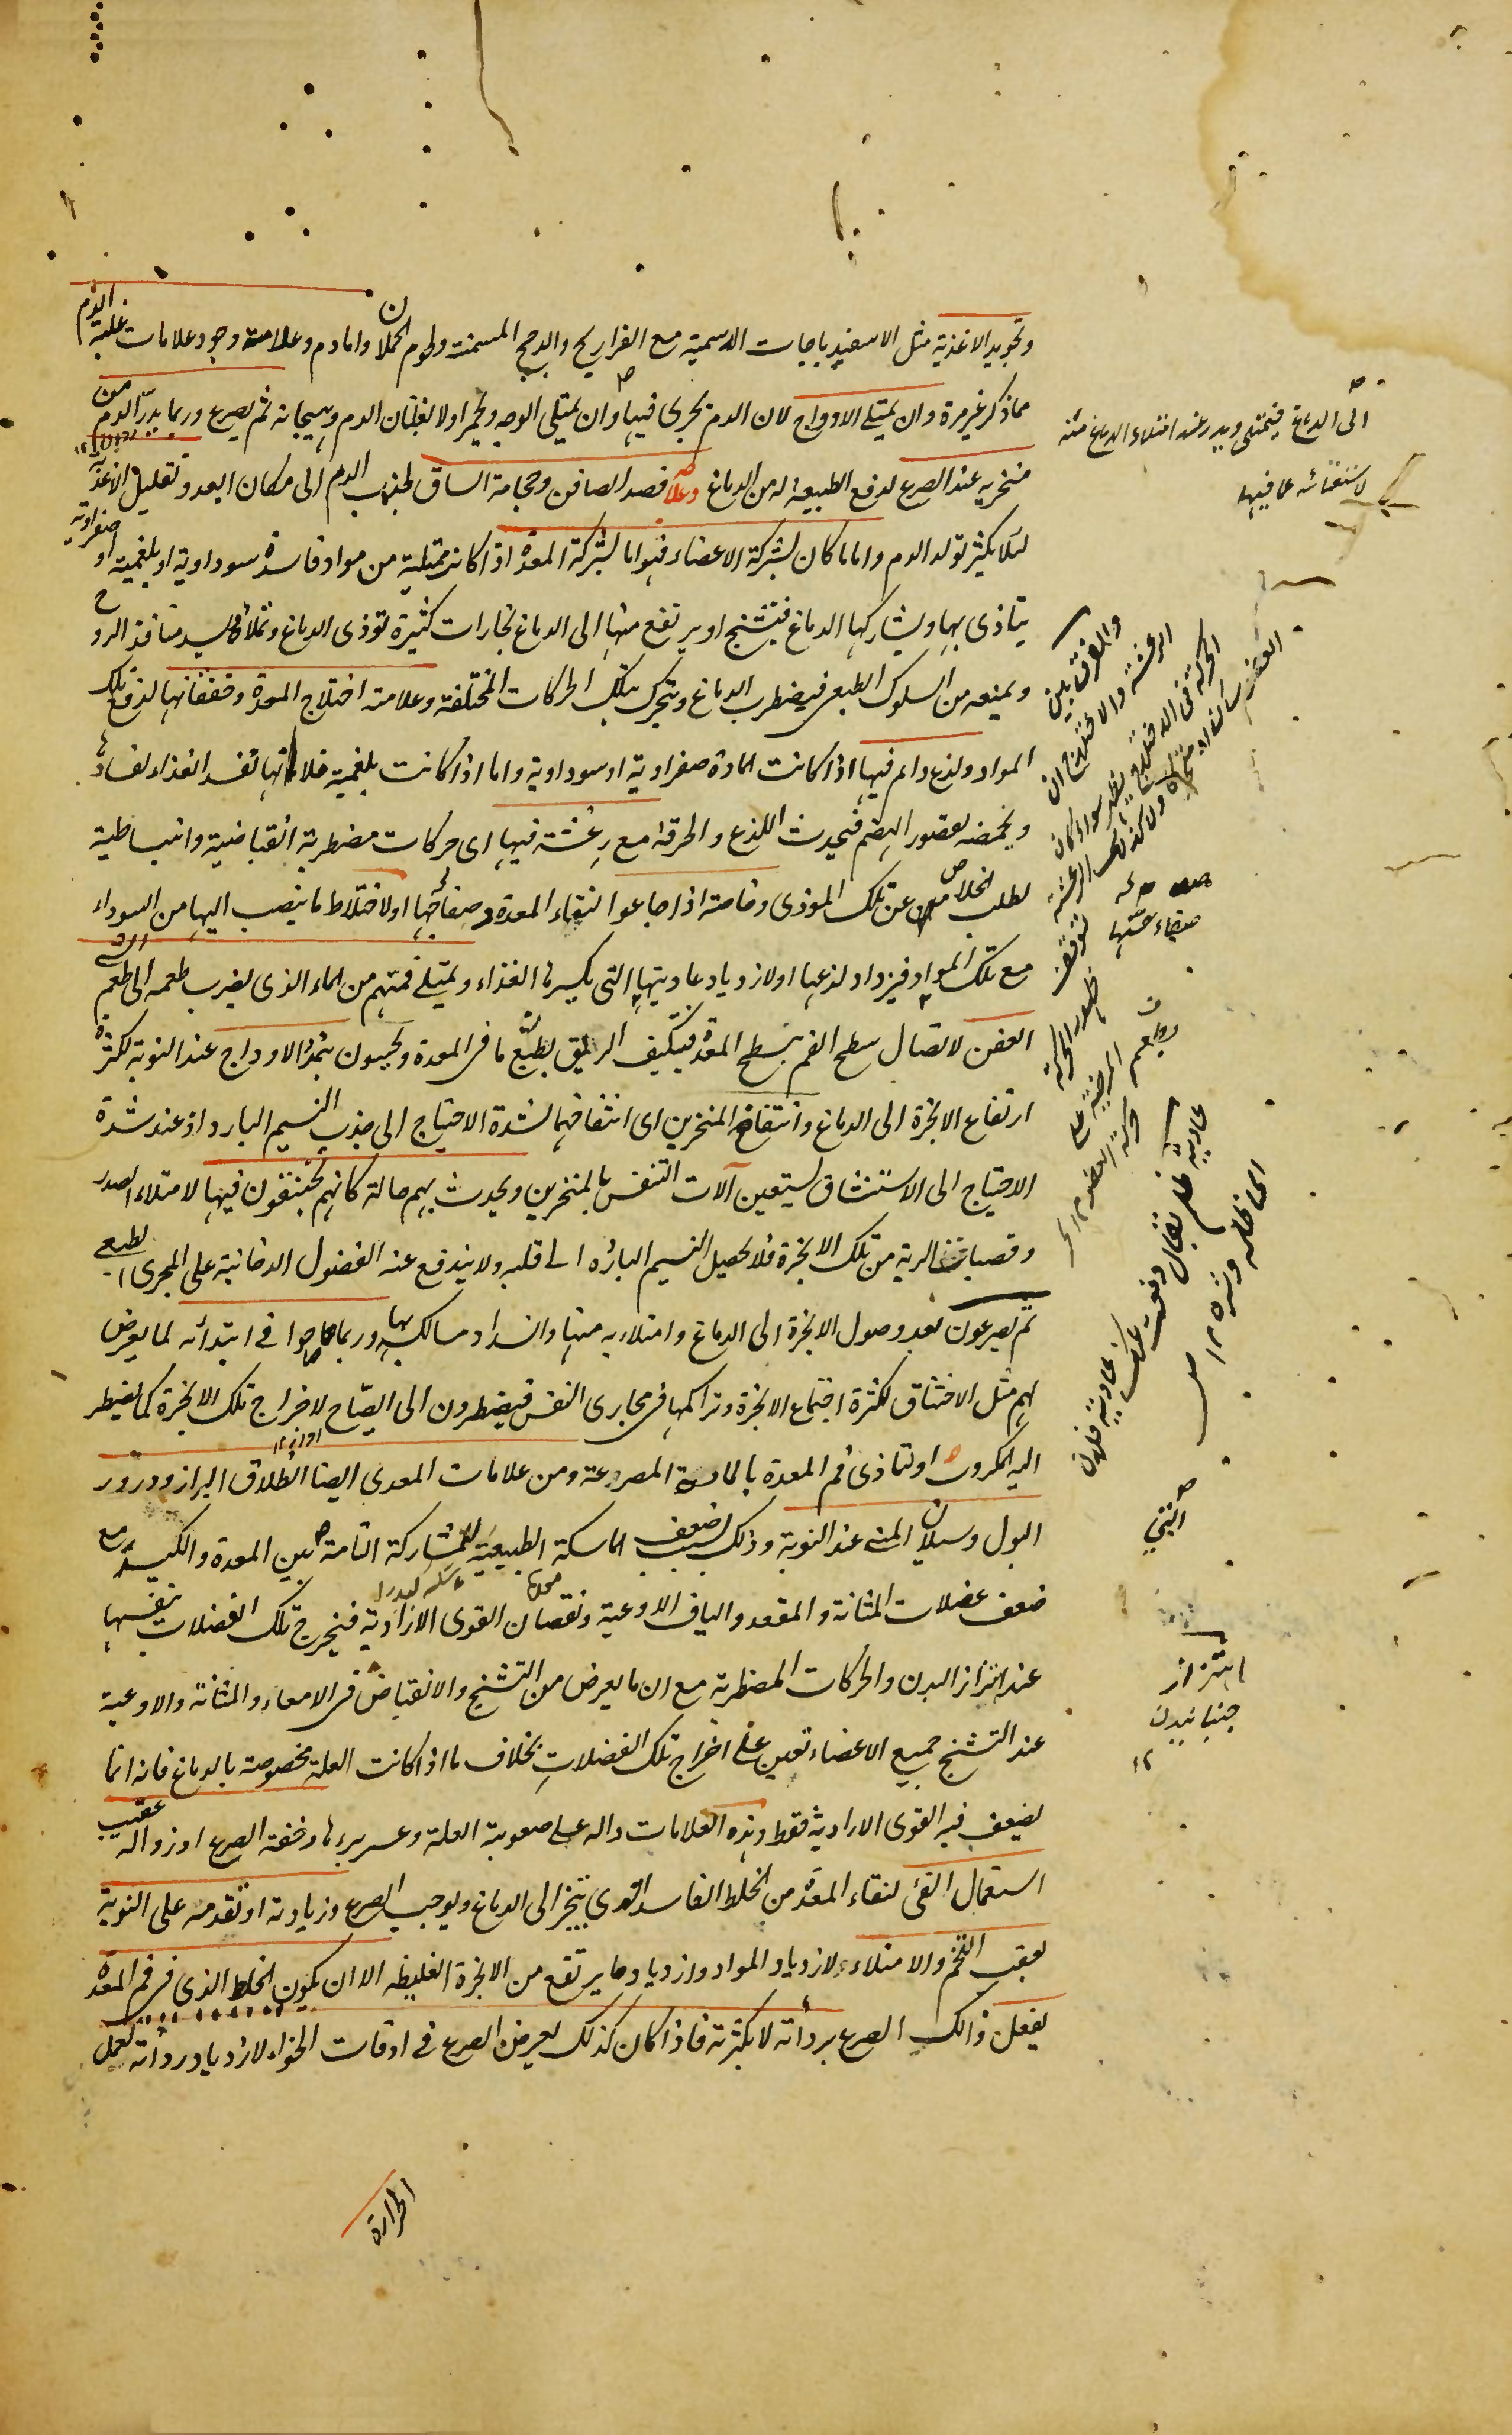 وتجويد الاغذية مثل الاسفيدباجات الدسمية مع الفراريج والدجج المسمنة ولحوم الحملان واما دم وعلامته وجود علامات غلبة الدم
مما ذكر غير مرة وان يمتلى الاوداج لان الدم يجرى فيها وان يمتلى الوجه ويحمر اولا لغليان الدم وهيجانه ثم يصرع وربما يدر الدم من
منخريه عند الصرع لدفع الطبيعة له من الدماغ وعلاجه فصد الصافن وحجامة الساق لجذب الدم الى مكان ابعد وتقليل الاغذية
لئلا يكثر تولد الدم واما ما كان لشركة الاعضاء فهو اما لشركة المعدة اذا كانت ممتلية من مواد فاسدة سوداوية او بلغمية او صفراوية
يتاذى بها ويشاركها الدماغ فيتشنج او يرتفع منها الى الدماغ بخارات كثيرة تؤذى الدماغ وتملأه ويسد منافذ الروح
ويمنعه من السلوك الطبعى فيضطرب الدماغ ويتحرك بتلك الحركات المختلفة وعلامته اختلاج المعدة وخفقانها لدفع تلك
المواد ولذع والم فيها اذا كانت المادة صفراوية او سوداوية واما اذا كانت بلغمية فلانها تفسد الغذاء لفسادها
ويحمضه لقصور الهضم فيحدث اللذع والحرقة مع رعشة فيها اى حركات مضطربة انقباضية وانبساطية
لطلب الخلاص عن تلك الموذى وخاصة اذا جاعوا لنقاء المعدة وصفائها او لاختلاط ما ينصب اليها من السوداء
مع تلك المواد فيزداد لذعها او لازدياد عاديتها التى يكسرها الغذاء ويمتلى فمهم من الماء الذى يضرب طعمه الى طعم
العفن لاتصال سطح الفم بسطح المعدة فيتكيف الريق بطبع ما فى المعدة ويحبسون بتمدد الاوداج عند النوبة لكثرة
ارتفاع الابخرة الى الدماغ وانتفاخ المنخرين اى انتفاخهما لشدة الاحتياج الى جذب النسيم البارد اذ عند شدة
الاحتياج الى الاستنشاق يستعين آلات التنفس بالمنخرين ويحدث بهم حالة كانهم يختنقون فيها لامتلاء الصدر
وقصبات الرية من تلك الابخرة فلا يحصل النسيم البارد الى قلبه ولا يندفع عنه الفضول الدخانية على المجرى الطبعى
ثم يصرعون بعد وصول الابخرة الى الدماغ وامتلائه منها وانسداد مسالكه بها وربما صاحوا فى ابتدائه لما يعرض
لهم مثل الاختناق لكثرة اجتماع الابخرة وتراكمها فى مجارى النفس فيضطرون الى الصياح لاخراج تلك الابخرة كما يضطر
اليه المكروب او لتاذى فم المعدة بالمادة المصرعة ومن علامات المعدى ايضا انطلاق البراز ودرور
البول وسيلان المنى عند النوبة وذلك بسبب ضعف الماسكة الطبيعية للمشاركة التامة بين المعدة والكبد مع
ضعف عضلات المثانة والمقعد والياف الاوعية ونقصان القوى الارادية فيخرج تلك الفضلات بنفسها
عند اهتزاز البدن والحركات المضطربة مع ان ما يعرض من التشنج والانقباض فى الامعاء والمثانة والاوعية
عند التشنج جميع الاعضاء تعين على اخراج تلك الفضلات بخلاف ما اذا كانت العلة مخصوصة بالدماغ فانه انما
يضعف فيه القوى الارادية فقط وهذه العلامات دالة على صعوبة العلة وعسر برءها وخفة الصرع او زواله عقيب
استعمال القئ لنقاء المعدة من الخلط الفاسد الذى يتبخر الى الدماغ ويوجب الصرع وزيادته او تقدمه على النوبة
بعقب التخم والامتلاء لازدياد المواد وازدياد ما يرتفع من الابخرة الغليظه الا ان يكون الخلط الذى فى فم المعدة
يفعل ذالك الصرع برداءته لا بكثرته فاذا كان كذلك يعرض الصرع فى اوقات الخواء لازدياد رداءته لعمل
الحرارة
الى الدماغ فيمتلى ويدر عند امتلاء الدماغ منه
لاستغنائه عما فيها
والفرق بين
الرعشة والاختلاج ان
الحركة فى الاختلاج يظهر سواء كان
اهتزاز
جنبانيدن
١٢